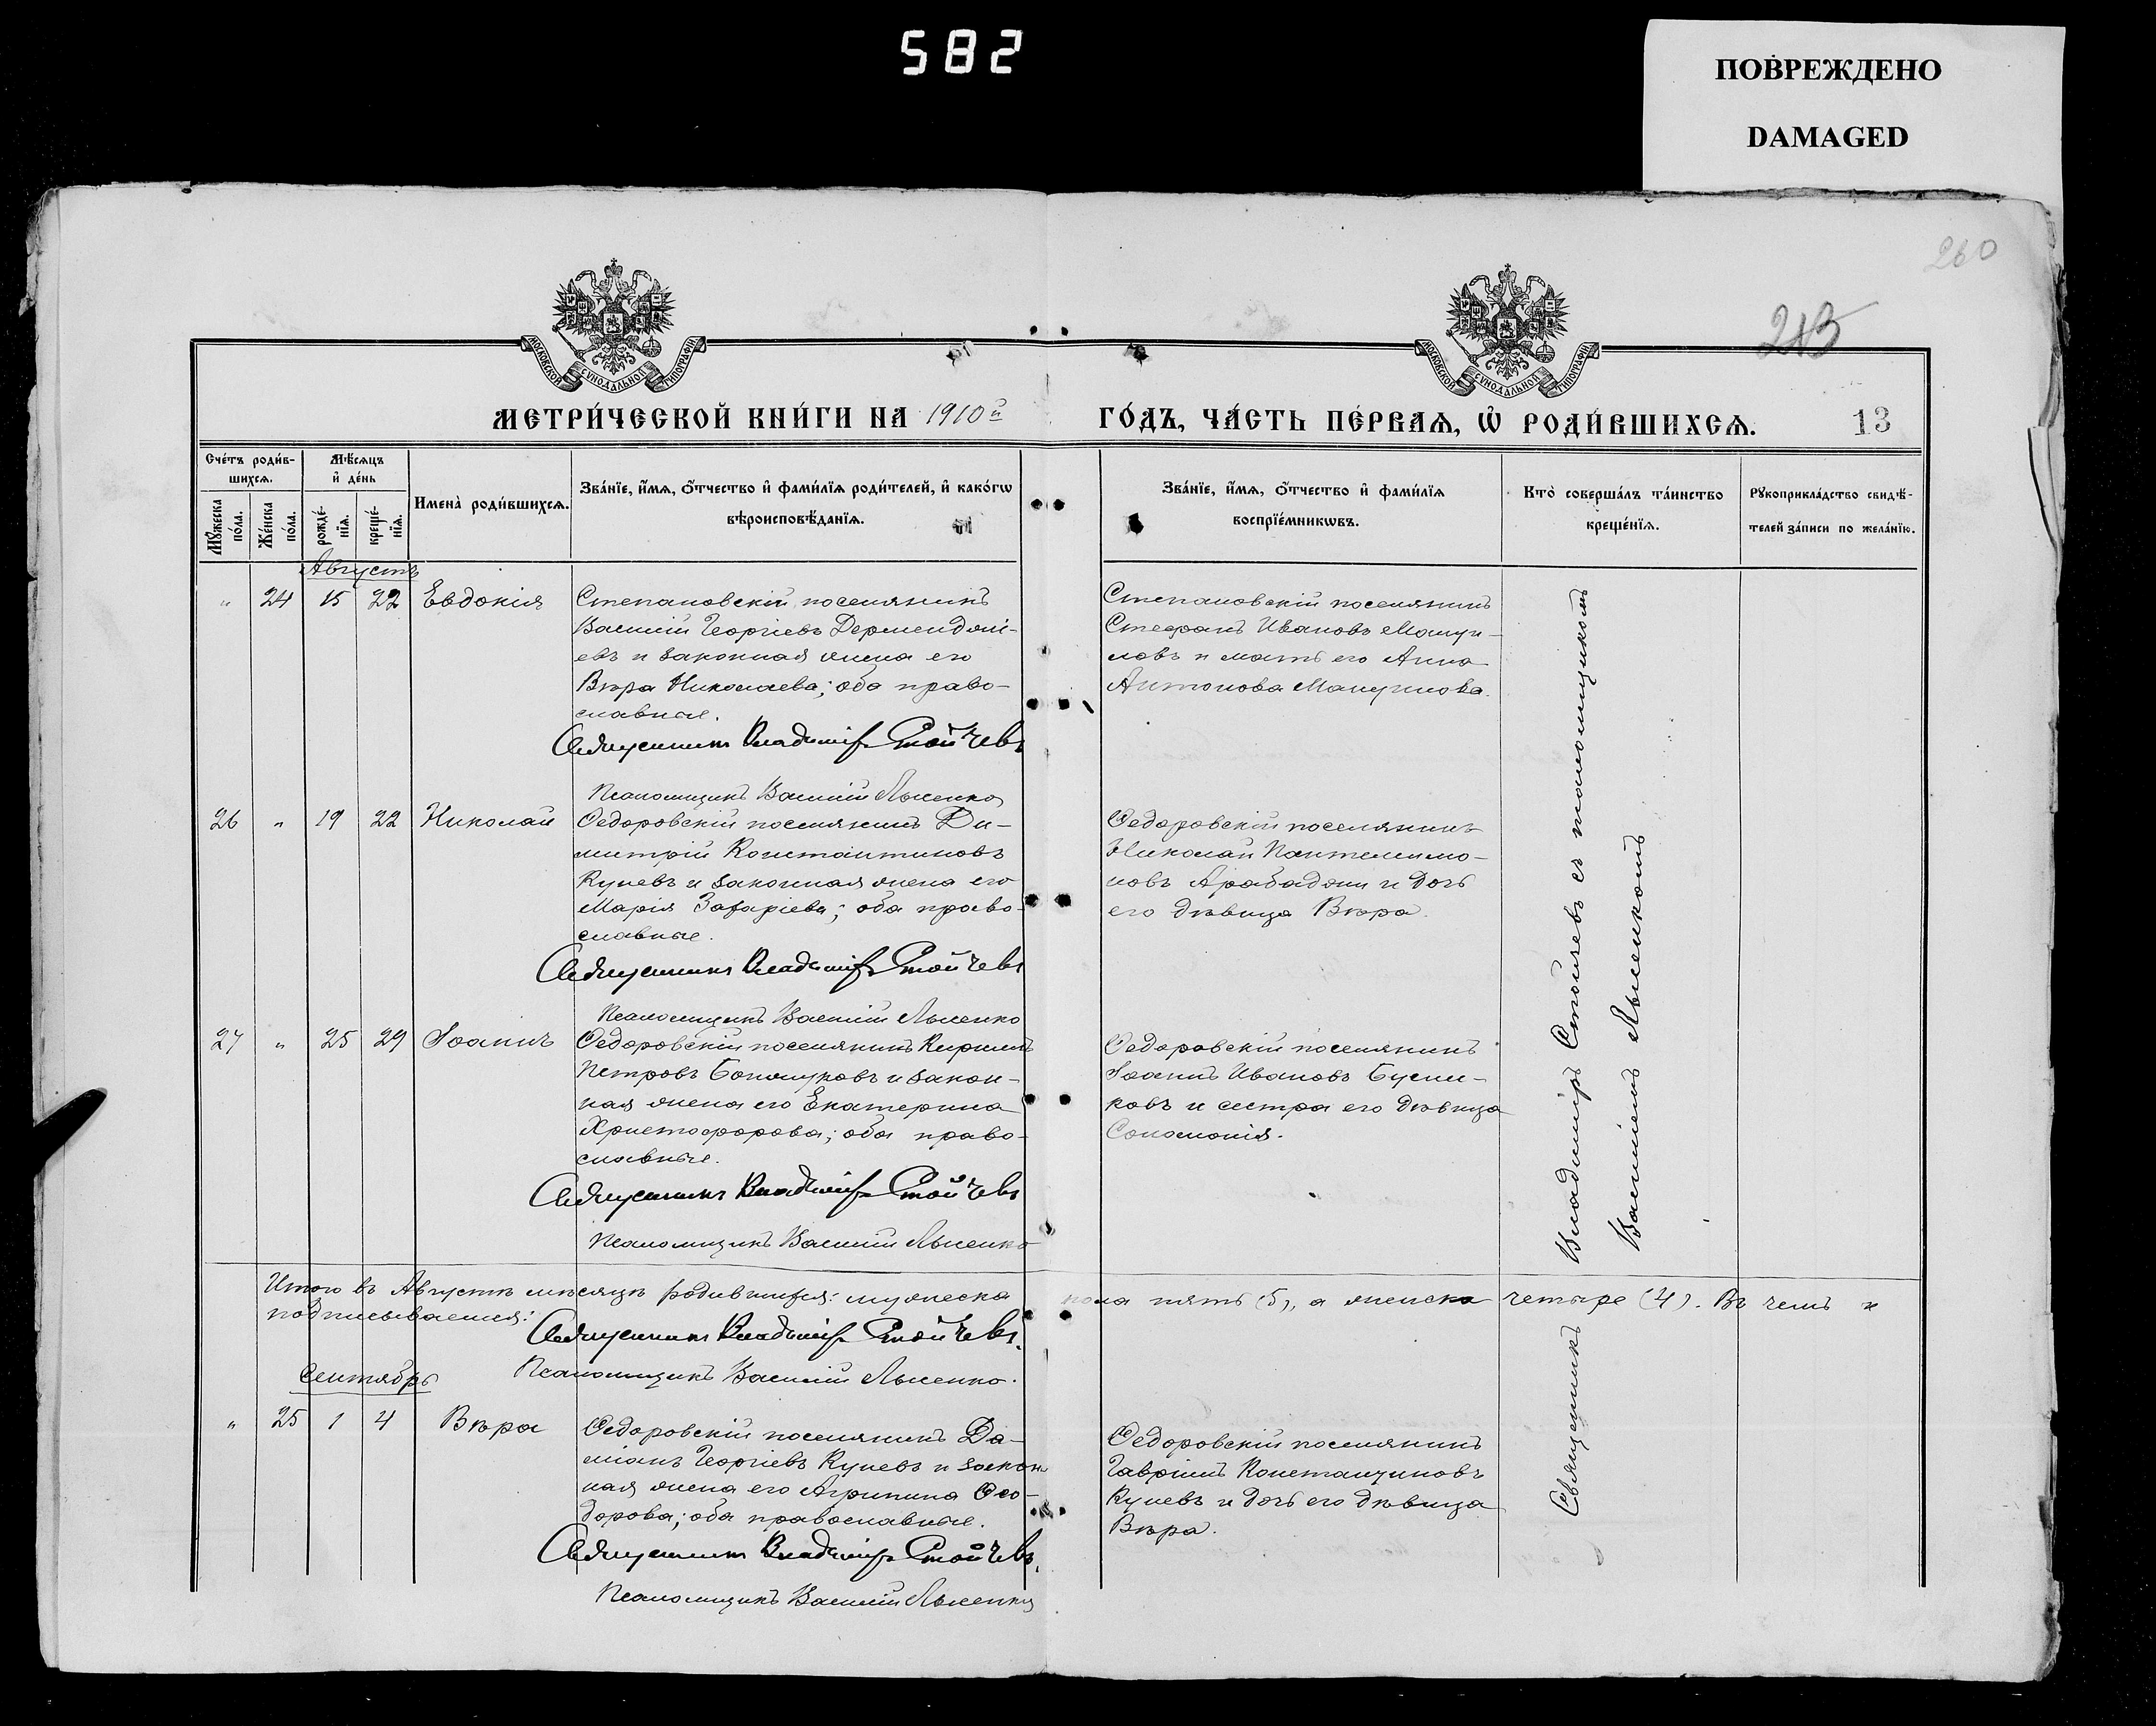 582
ПОВРЕЖДЕНО
DAMAGED
260
213
МОСКОВСКОЙ СѴНОДАЛЬНОЙ ТИПОГРАФІИ
МОСКОВСКОЙ СѴНОДАЛЬНОЙ ТИПОГРАФІИ
МЕТРИ́ЧЕСКОЙ КНИ́ГИ НА 1910й ГО́ДЪ, ЧА́СТЬ ПЕ́РВАѦ, Ѡ҆ РОДИ́ВШИХСѦ. 13
Сче́тъ роди́в-
шихсѧ.
Мꙋ́жеска по́ла.
Же́нска по́ла.
Мѣ́сяцъ и҆ де́нь
рожде́-нїѧ.
креще́-нїѧ.
Имена̀ роди́вшихсѧ.
Зва́нїе, и҆́мѧ, ѻ҆́тчество и҆ фами́лїѧ роди́телей, и҆ како́гѡ
вѣроисповѣ́данїѧ.
Зва́нїе, и҆́мѧ, ѻ҆́тчество и҆ фами́лїѧ
воспрїе́мникѡвъ.
Кто̀ соверша́лъ та́инство
креще́нїѧ.
Рꙋкоприкла́дство свидѣ́-
телей за́писи по жела́нїю.
Августъ
" 24 15 22 Евдокія
Степановскій поселянинъ
Василій Георгіевъ Дерменджі-
евъ и законная жена его
Вѣра Николаева; оба право-
славные.
Священникъ Владиміръ Стойчевъ
Псаломщикъ Василій Лысенко
Степановскій поселянинъ
Стефанъ Ивановъ Манчи-
ловъ и мать его Анна
Антонова Манчилова.
26 " 19 22 Николай
Ѳедоровскій поселянинъ Ди-
митрій Константиновъ
Кулевъ и законная жена его
Марія Захаріева; оба право-
славные.
Священникъ Владиміръ Стойчевъ
Псаломщикъ Василій Лысенко
Ѳедоровскій поселянинъ
Николай Пантелеимо-
новъ Арабаджи и дочь
его дѣвица Вѣра.
27 " 25 29 Іоаннъ
Ѳедоровскій поселянинъ Кириллъ
Петровъ и закон-
ная жена его Екатерина
Христофорова; оба право-
славные.
Священникъ Владиміръ Стойчевъ
Псаломщикъ Василій Лысенко
Ѳедоровскій поселянинъ
Іоаннъ Ивановъ
и сестра его дѣвица
Соломонія.
Итого въ Августѣ мѣсяцѣ родившихся: мужеска пола пять (5), а женска четыре (4). Въ чемъ и
подписываемся:
Священникъ Владиміръ Стойчевъ.
Псаломщикъ Василій Лысенко.
Сентябрь
" 25 1 4 Вѣра
Ѳедоровскій поселянинъ Да-
міанъ Георгіевъ Кулевъ и закон
ная жена его Агрипина Ѳео-
дорова; оба православные.
Священникъ Владиміръ Стойчевъ.
Псаломщикъ Василій Лысенко
Ѳедоровскій поселянинъ
Гавріилъ Константиновъ
Кулевъ и дочь его дѣвица
Вѣра.
Священникъ Владиміръ Стойчевъ съ псаломщикомъ
Василіемъ Лысенкомъ